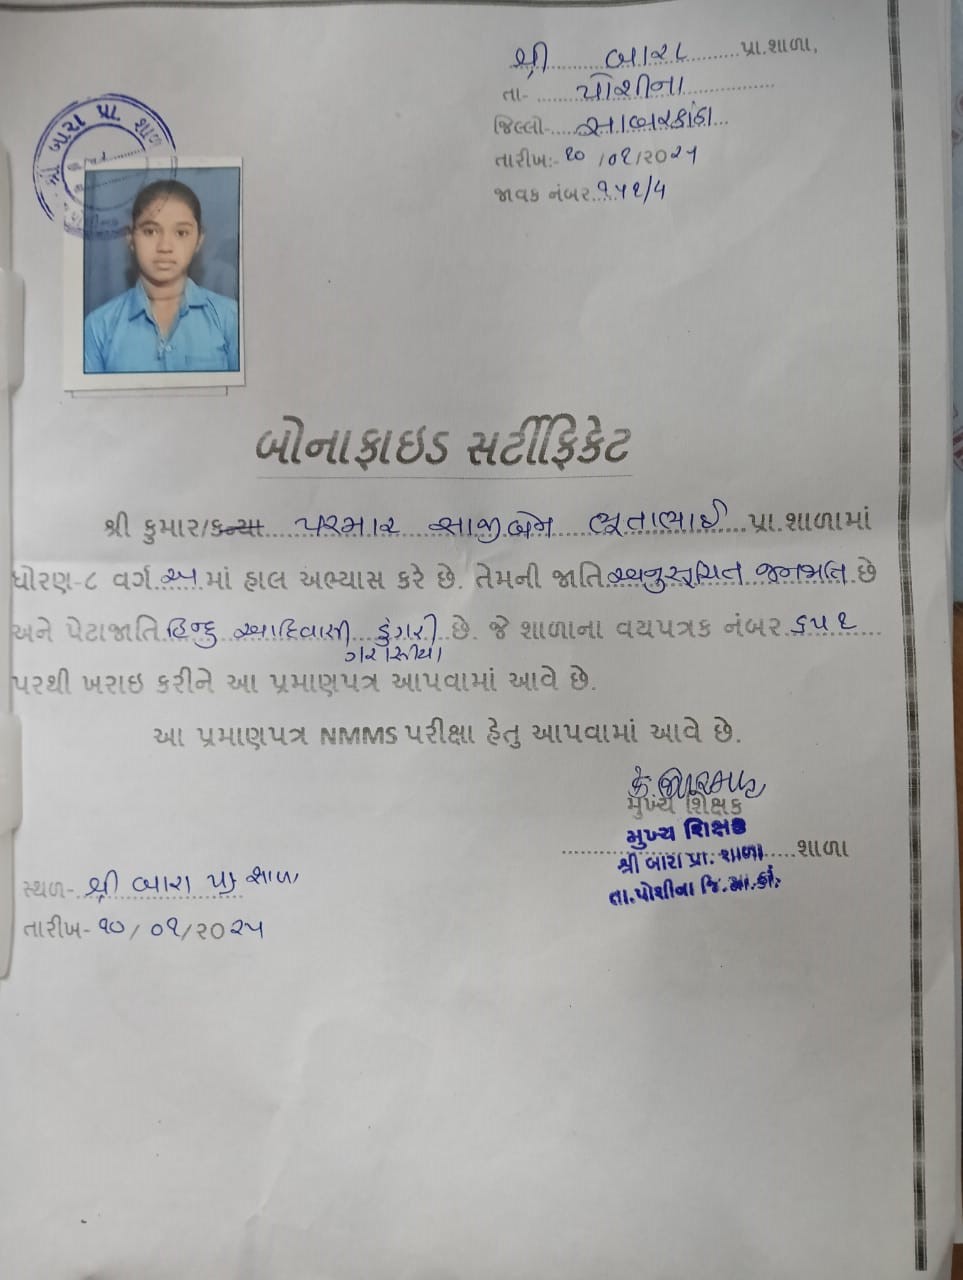 શ્રી બારા પ્રા.શાળા,
તા- પોશીના
જિલ્લો- સાબરકાંઠા
તારીખ:- ૧૦/૦૧/૨૦૨૫
જાવક નંબર ૧૫૧/૫
શ્રી બારા પ્રા. શાળા
બોનાફાઇડ સર્ટીફિકેટ
શ્રી કુમાર/કન્યા પરમાર સાજીબેન ભૂતાભાઈ પ્રા.શાળામાં
ધોરણ-૮ વર્ગ અ માં હાલ અભ્યાસ કરે છે. તેમની જાતિ અનુસૂચિત જનજાતિ છે
અને પેટાજાતિ હિન્દુ આદિવાસી ડુંગરી ગરાસીયા છે. જે શાળાના વયપત્રક નંબર ૬૫૧
પરથી ખરાઇ કરીને આ પ્રમાણપત્ર આપવામાં આવે છે.
આ પ્રમાણપત્ર NMMS પરીક્ષા હેતુ આપવામાં આવે છે.
મુખ્ય શિક્ષક
મુખ્ય શિક્ષક
શ્રી બારા પ્રા. શાળા શાળા
તા.પોશીના જિ.સા.કાં.
સ્થળ- શ્રી બારા પ્રા શાળા
તારીખ- ૧૦/૦૧/૨૦૨૫